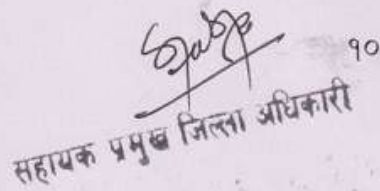 १०
सहायक प्रमुख जिल्ला अधिकारी